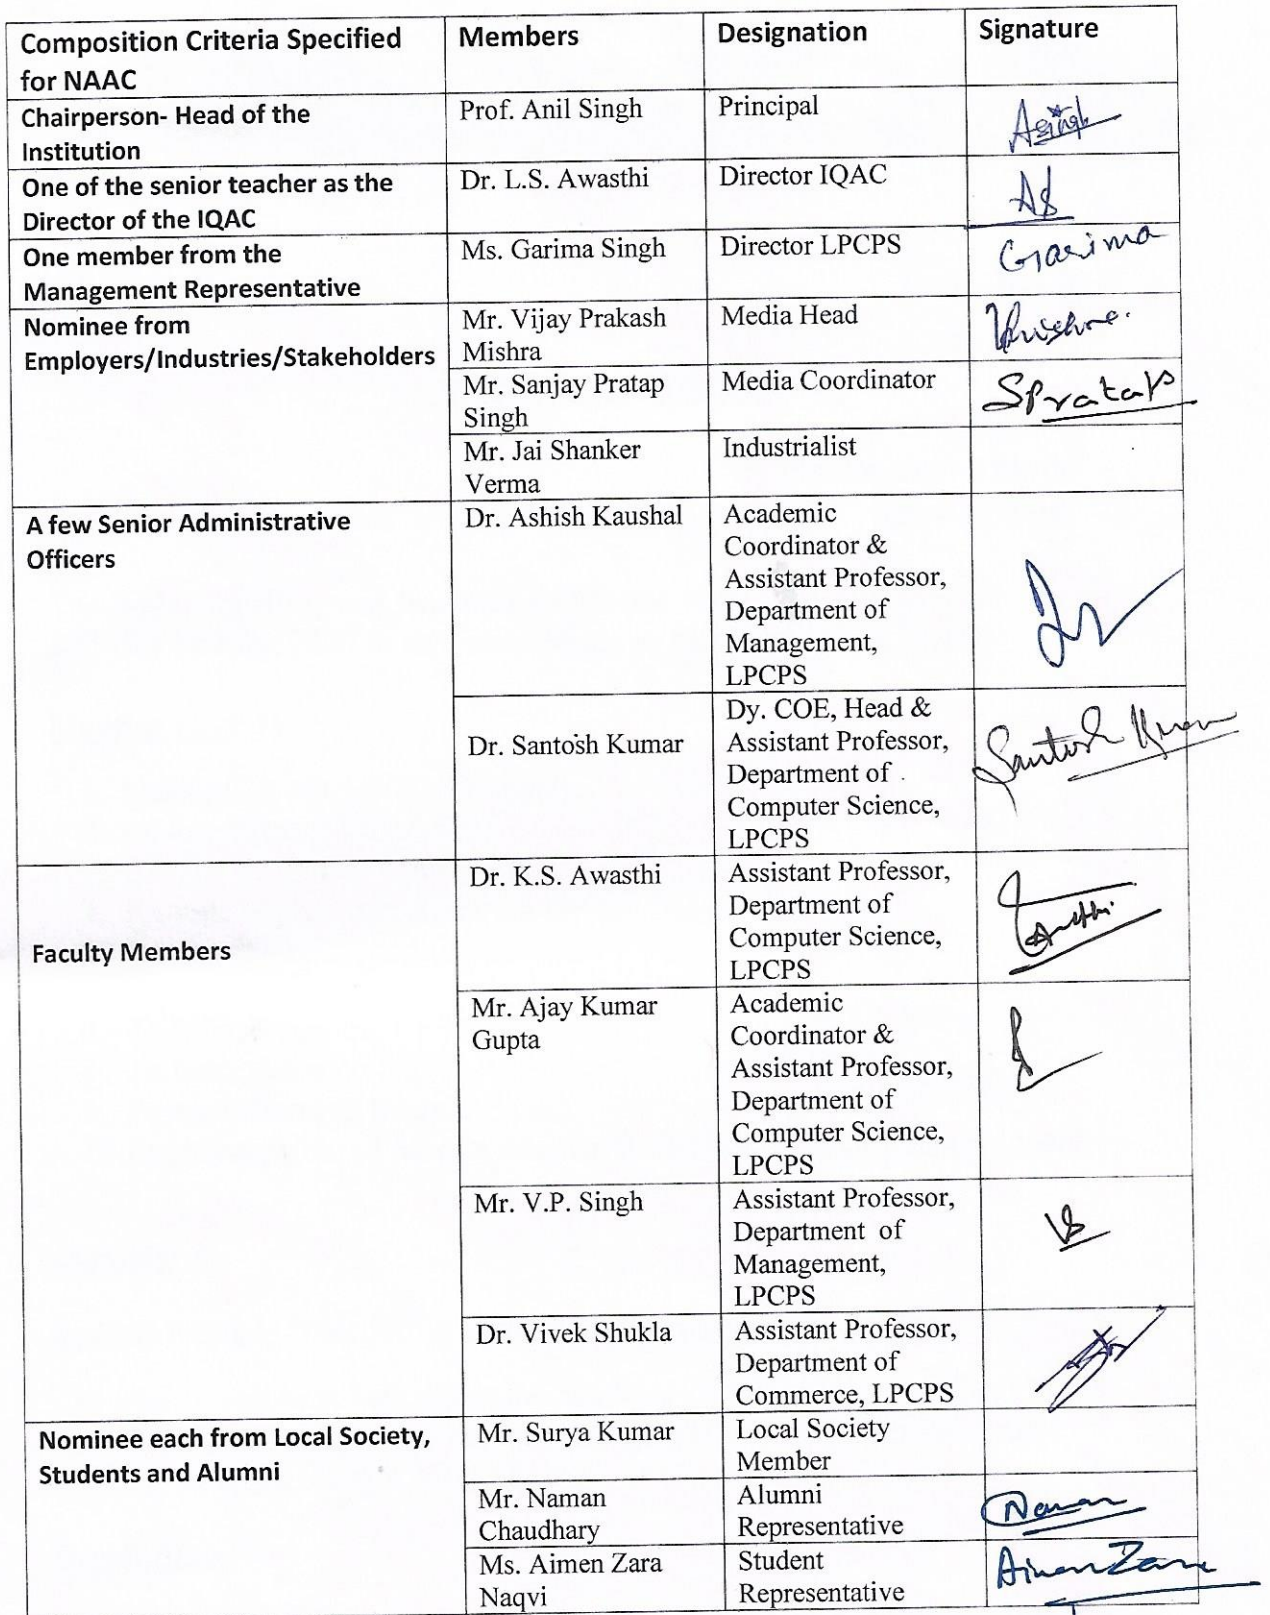 Composition Criteria Specified
for NAAC
Members
Designation
Signature
Chairperson- Head of the
Institution
Prof. Anil Singh
Principal
ASingh
One of the senior teacher as the
Director of the IQAC
Dr. L.S. Awasthi
Director IQAC
One member from the
Management Representative
Ms. Garima Singh
Director LPCPS
Garima
Nominee from
Employers/Industries/Stakeholders
Mr. Vijay Prakash
Mishra
Media Head
Mr. Sanjay Pratap
Singh
Media Coordinator
SPratap
Mr. Jai Shanker
Verma
Industrialist
A few Senior Administrative
Officers
Dr. Ashish Kaushal
Academic
Coordinator &
Assistant Professor,
Department of
Management,
LPCPS
Dr. Santosh Kumar
Dy. COE, Head &
Assistant Professor,
Department of
Computer Science,
LPCPS
Santosh Kumar
Faculty Members
Dr. K.S. Awasthi
Assistant Professor,
Department of
Computer Science,
LPCPS
Mr. Ajay Kumar
Gupta
Academic
Coordinator &
Assistant Professor,
Department of
Computer Science,
LPCPS
Mr. V.P. Singh
Assistant Professor,
Department of
Management,
LPCPS
Dr. Vivek Shukla
Assistant Professor,
Department of
Commerce, LPCPS
Nominee each from Local Society,
Students and Alumni
Mr. Surya Kumar
Local Society
Member
Mr. Naman
Chaudhary
Alumni
Representative
Naman
Ms. Aimen Zara
Naqvi
Student
Representative
Aimen Zara